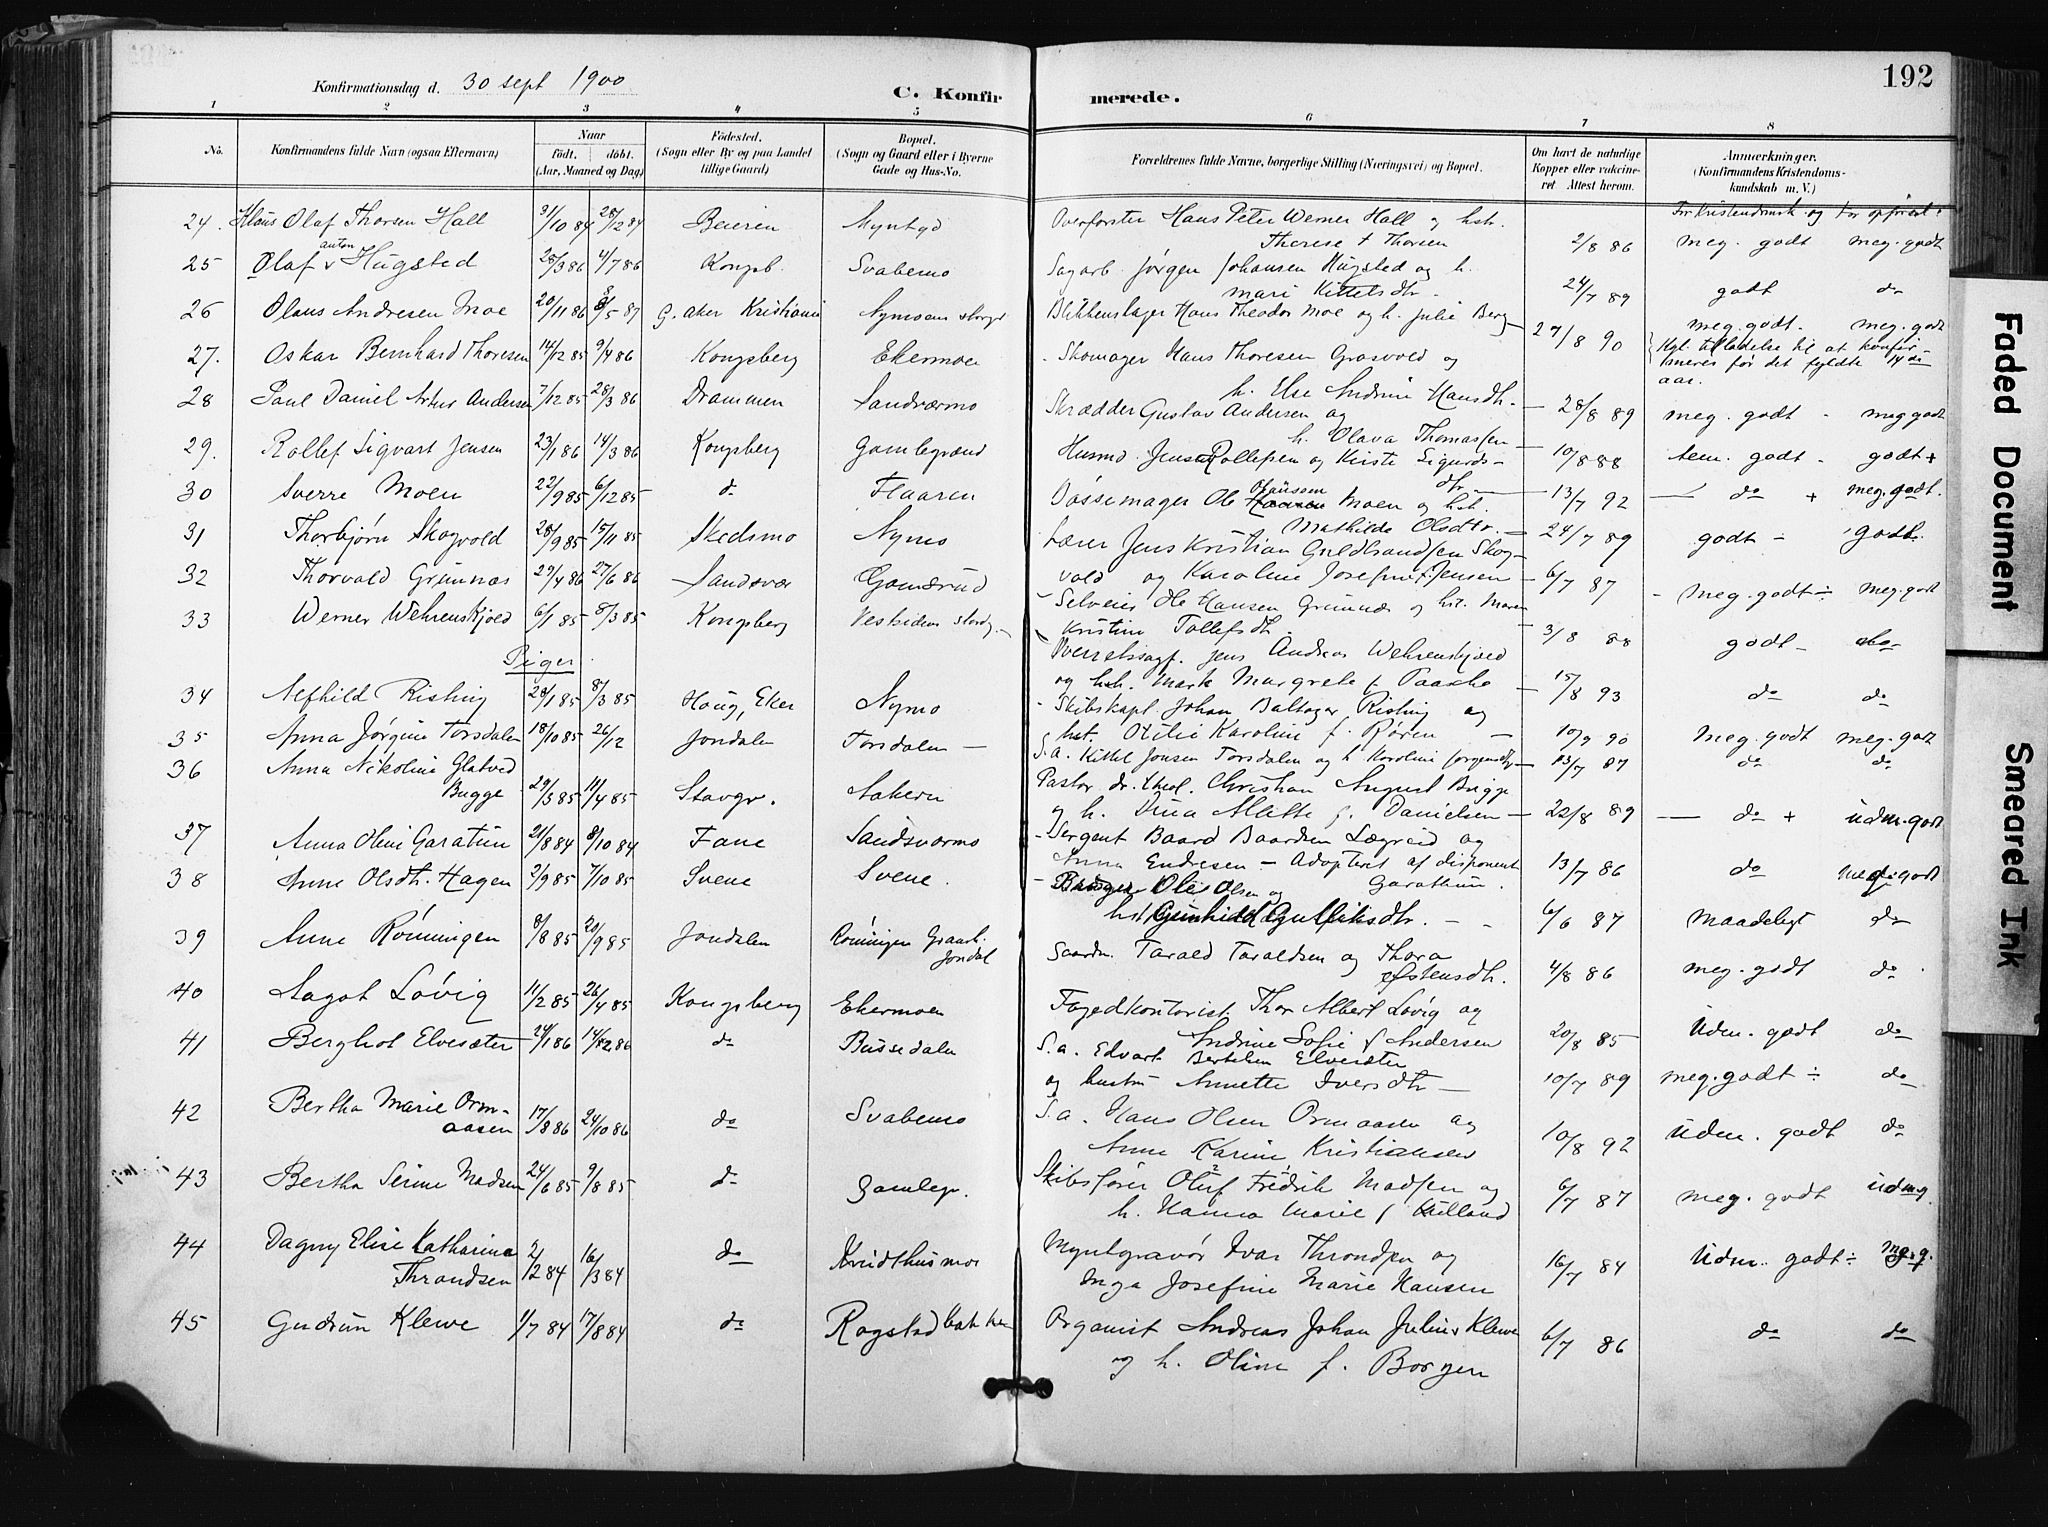 192
Konfirmationsdag d. 30 sept 1900
C. Konfirmerede.
1 2 3 4 5 6 7 8
No.
Konfirmandens fulde Navn (ogsaa Efternavn)
Naar
födt. döbt.
(Aar, Maaned og Dag)
Födested.
(Sogn eller By og paa Landet
tillige Gaard)
Bopæl.
(Sogn og Gaard eller i Byerne
Gade og Hus-No.
Forældrenes fulde Navne, borgerlige Stilling (Næringsvei) og Bopæl.
Om havt de naturlige
Kopper eller vakcine-
ret Attest herom.
Anmærkninger.
(Konfirmandens Kristendoms-
kundskab m. V.)
24. Klaus Olaf Thorsen Hall 31/10 84 28/12 84 Beieren Myntgd Overførster Hans Peter Werner Hall og hst.
Therese f Thorsen 2/8 86 meg. godt meg. godt
25 Olaf anton Hugsted 28/3 86 4/7 86 Kongsb. Svabemo Sagarb. Jørgen Johansen Hugsted og h.
Mari Kittelsdtr. 24/7 89 godt do
26 Olaus Andresen Moe 20/11 86 G. aker Kristiania Blikkenslager Hans Theodor Moe og h. Julie Berg 27/8 90 meg. godt. meg. godt
Kgl. tilladelse til at konfir-
meres før det fyldte 14de
aar.
27. Oskar Bernhard Thoresen 14/12 85 9/4 86 Kongsberg Ekermoen Skomager Hans Thoresen Grosvold og
h. Else Andrine Hansdtr. 28/8 89 meg. godt meg godt
28 Paul Daniel Artur Andersen 7/12 85 28/3 86 Drammen Sandsværmo Skrædder Gustav Andersen og
h. Olava Thomassen 10/8 88 tem. godt godt +
29. Rollef Sigvart Jensen 23/1 86 14/3 86 Kongsberg Gamlegrænd Husmd. Jens Rollefsen og Kirsti Sigurds-
dtr. 13/7 92 do + meg. godt.
30 Sverre Moen 22/9 85 6/12 85 do Flaaren Bøssemager Ole Olaussen Moen og hst.
Mathilde Olsdtr. 24/7 89 godt godt.
31 Thorbjørn Skogvold 28/9 85 15/11 85 Skedsmo Nymo Lærer Jens Kristian Guldbrandsen Skog-
vold og Karoline Josefine f. Jensen 6/7 87 meg. godt ÷ meg. godt
32 Thorvald Grünnæs 29/4 86 27/6 86 Sandsvær Gomsrud Selveier Ole Hansen Grünnæs og hst. Maren
Kristine Tollefsdtr. 3/8 88 godt do
33 Werner Wehrenskjold 6/1 85 8/3 85 Kongsberg Jens Andreas Wehrenskjold
og hst. Margrete f. Paaske 15/8 93 do do
Piger
34 Alfhild Risting 28/1 85 8/3 85 Houg, Eker Nymo Skibskapt. Johan Baltazar Risting og
hst. Otilie Karoline f. Røren 10/9 90 Meg. godt meg. godt
35 Anna Jørgine Torsdalen 18/10 85 26/12 Jondalen Torsdalen S.a. Kittel Jonsen Torsdalen og h Karoline Jørgensdtr 13/7 87 do do
36 Anna Nikoline Glatved
Bugge 29/3 85 11/4 85 Stavgr. Aakern Pastor dr. theol. Christian August Bugge
og h. Dina Alette f. Danielsen 22/8 89 do + udm. godt
37 Anna Oline Garatun 21/8 84 8/10 84 Fane Sandsværmo Sergent Baard Baardsen Lægreid og
Anna Endresen - Adopteret af disponent
Garathun. 13/7 86 do meg. godt
38 Anne Olsdtr. Hagen 2/9 85 7/10 85 Svene Svene. Ole Olsen og
hst Gunhild Gulliksdtr. 6/6 87 maadeligt do
39 Anne Rönningen 8/8 85 20/9 85 Jondalen Rönningen
Jondal Gaardm. Tarald Taraldsen og Thora
Østensdtr. 4/8 86 meg. godt do
40 Aagot Lövig 11/2 85 26/4 85 Kongsberg Ekermoen Fogedkontorist Thor Albert Lövig og
Andrine Sofie f Andersen 20/8 85 Udm. godt do
41 Berghot Elvesæter 24/1 86 do Bussedalen S.a. Edvart Bertelsen Elvesæter
og hustru Annette Iversdtr 10/7 89 meg. godt ÷ do
42 Bertha Marie Orm-
aasen 17/8 86 24/10 86 do Svabemo S.a. Hans Olsen Ormaasen og
Anne Karine Kristiansen 10/8 92 Udm. godt do
43 Bertha Serine Madsen 24/6 85 9/8 85 do Gamlegr. Skibsfører Oluf Fredrik Madsen og
h. Hanna Marie f Kielland 6/7 87 meg. godt udmg.
44 Dagny Elise Katharina
Throndsen 2/2 84 16/3 84 do Krudthusmoe Myntgravør Ivar Throndsen og
Inga Josefine Marie Hansen 16/7 84 Udm. godt ÷ mg. g.
45 Gudrun Klewe 1/7 84 17/8 84 do Rogstadbakken Organist Andreas Johan Julius Klewe
og h. Oline f. Borgen 6/7 86 do do
Faded Document
Smeared Ink